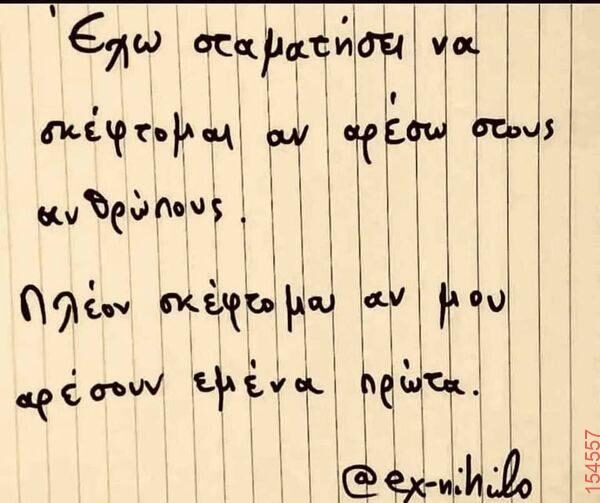 Έχω σταματήσει να
σκέφτομαι αν αρέσω στους
ανθρώπους.
Πλέον σκέφτομαι αν μου
αρέσουν εμένα πρώτα.
@ex-nihilo
154557